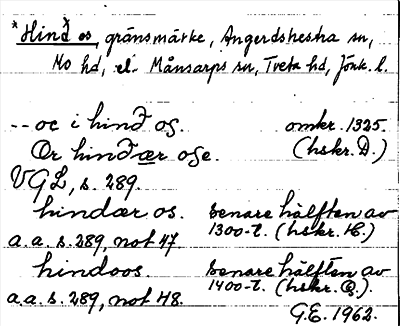 *Hinð os, gränsmärke, Angerdshestra sn,
Mo hd, el. Månsarps sn, Tveta hd, Jönk. l.
-- oc i hinð os. omkr. 1325.
Or hindær ose. (hskr. D.)
VGL, s. 289.
hindær os. senare hälften av
1300-t. (hskr. H.)
a.a. s. 289, not 47
hindoos. senare hälften av
1400-t. (hskr. Q.)
a.a. s. 289, not 48.
G.E. 1962.